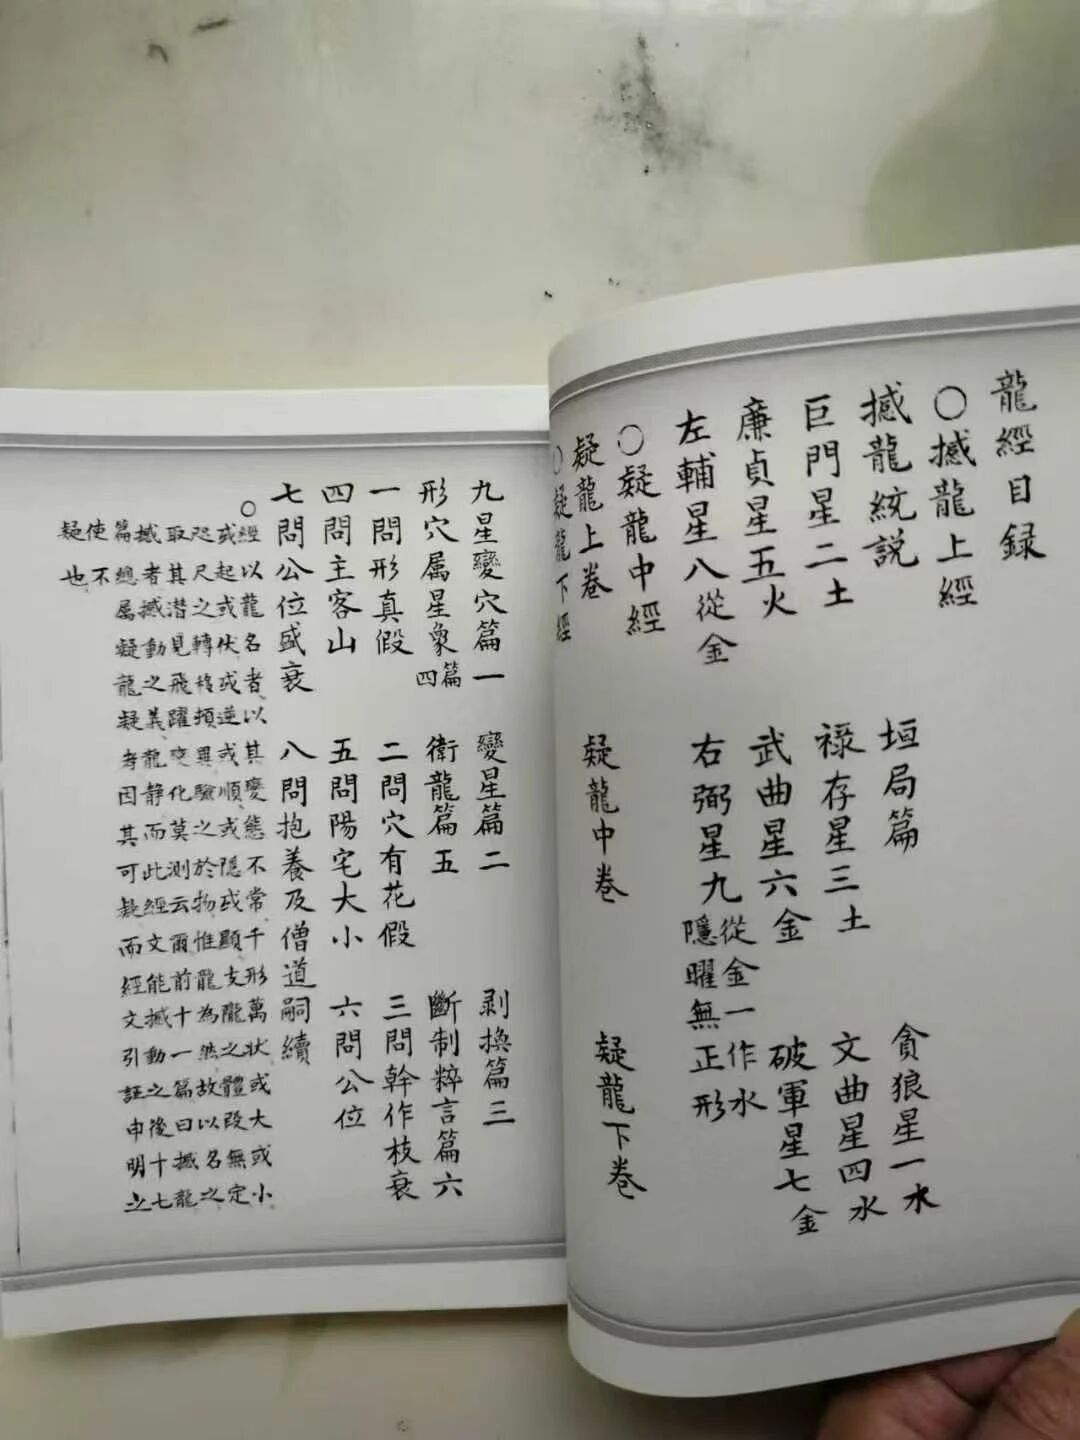 龍經目録
○撼龍上經
撼龍統説 垣局篇 貪狼星一水
巨門星二土 禄存星三土 文曲星四水
廉貞星五火 武曲星六金 破軍星七金
左輔星八從金 右弼星九 從金一作水
隱曜無正形
○疑龍中經
疑龍上卷 疑龍中卷 疑龍下卷
○疑龍下經
九星變穴篇一 變星篇二 剥換篇三
形穴属星象篇四 衛龍篇五 斷制粹言篇六
一問形真假 二問穴有花假 三問幹作枝衰
四問主客山 五問陽宅大小 六問公位
七問公位盛衰 八問抱養及僧道嗣續
○
經以龍名者以其變態不常千形萬狀或大或小
或起或伏或逆或順或隱或顯支隴之體段無定
咫尺之轉移頓異驗之於物惟龍為然故以名之
取其潜見飛躍變化莫測云爾前十一篇曰撼龍
撼者撼動之義龍静而此經文能撼動之後十七
篇總属疑龍疑者因其可疑而經文引証申明之
使不
疑也